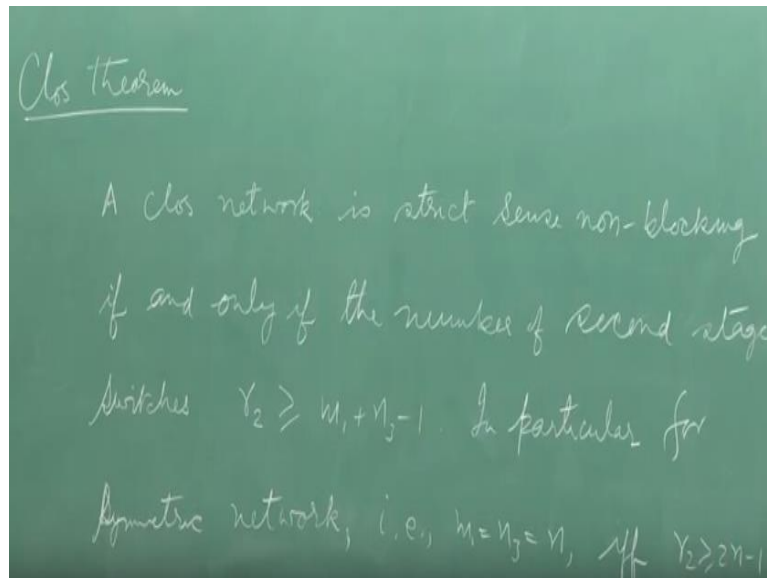 Clos theorem
A Clos network is strict sense non-blocking
if and only if the number of second stage
switches r₂ ≥ m₁ + n₃ - 1. In particular for
symmetric network, i.e., m₁ = n₃ = n, iff r₂ ≥ 2n-1